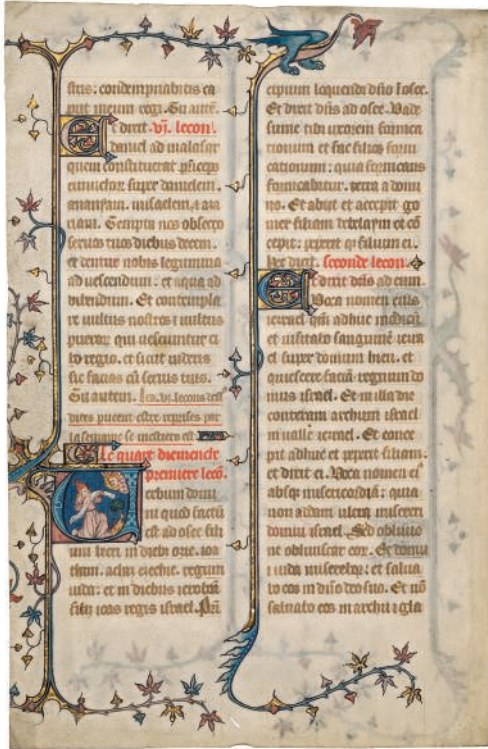 stris: condempnabitis ca
put meum regi. Tu aute.
Et dixit .vj. lecon.
daniel ad malasar
quem constituerat princeps
eunuchor super danielem.
ananiam. misaelem. 7 aza
riam. Tempta nos obsecro
seruos tuos diebus decem.
et dentur nobis legumina
ad uescendum: et aqua ad
bibendum. Et contempla
re uultus nostros: 7 uultus
pueror qui uescuntur ci
bo regio. et sicut uideris
sic facias cu seruis tuis.
Tu autem. vj. lecons
pueent estre reprises par
la sepmaine se mestiers est
Le quart diemenche
premiere leco.
Verbum domi
ni quod factu
est ad osee fili
um beeri in dieb ozie. ioa
than. achaz ezechie. regum
iuda: et in diebus ieroboa
filij ioas regis israel. Pn
cipium loquendi dno Iosee.
Et dixit dns ad osee. Vade
sume tibi uxorem fornica
tionum et fac filios forni
cationum: quia fornicans
fornicabitur. terra a domi
no. Et abiit et accepit go
mer filiam debelaym et co
cepit: peperit q filium ei.
Hec dicit. Seconde lecon.
Et dixit dns ad eum.
Voca nomen eius
iezrael qm adhuc modicu
et uisitabo sanguine iezra
el super domum hieu. et
quiescere facia regnum do
mus israel. Et in illa die
conteram archum israel
in ualle iezrael. Et conce
pit adhuc et peperit filiam.
et dixit ei. Voca nomen ei
absq misericordia: quia
non addam ultra misereri
domui israel. Sed obliuio
ne obliuiscar eor. Et domui
iuda miserebor: et salua
bo eos in dno deo suo. Et no
saluabo eos in archu 7 gla